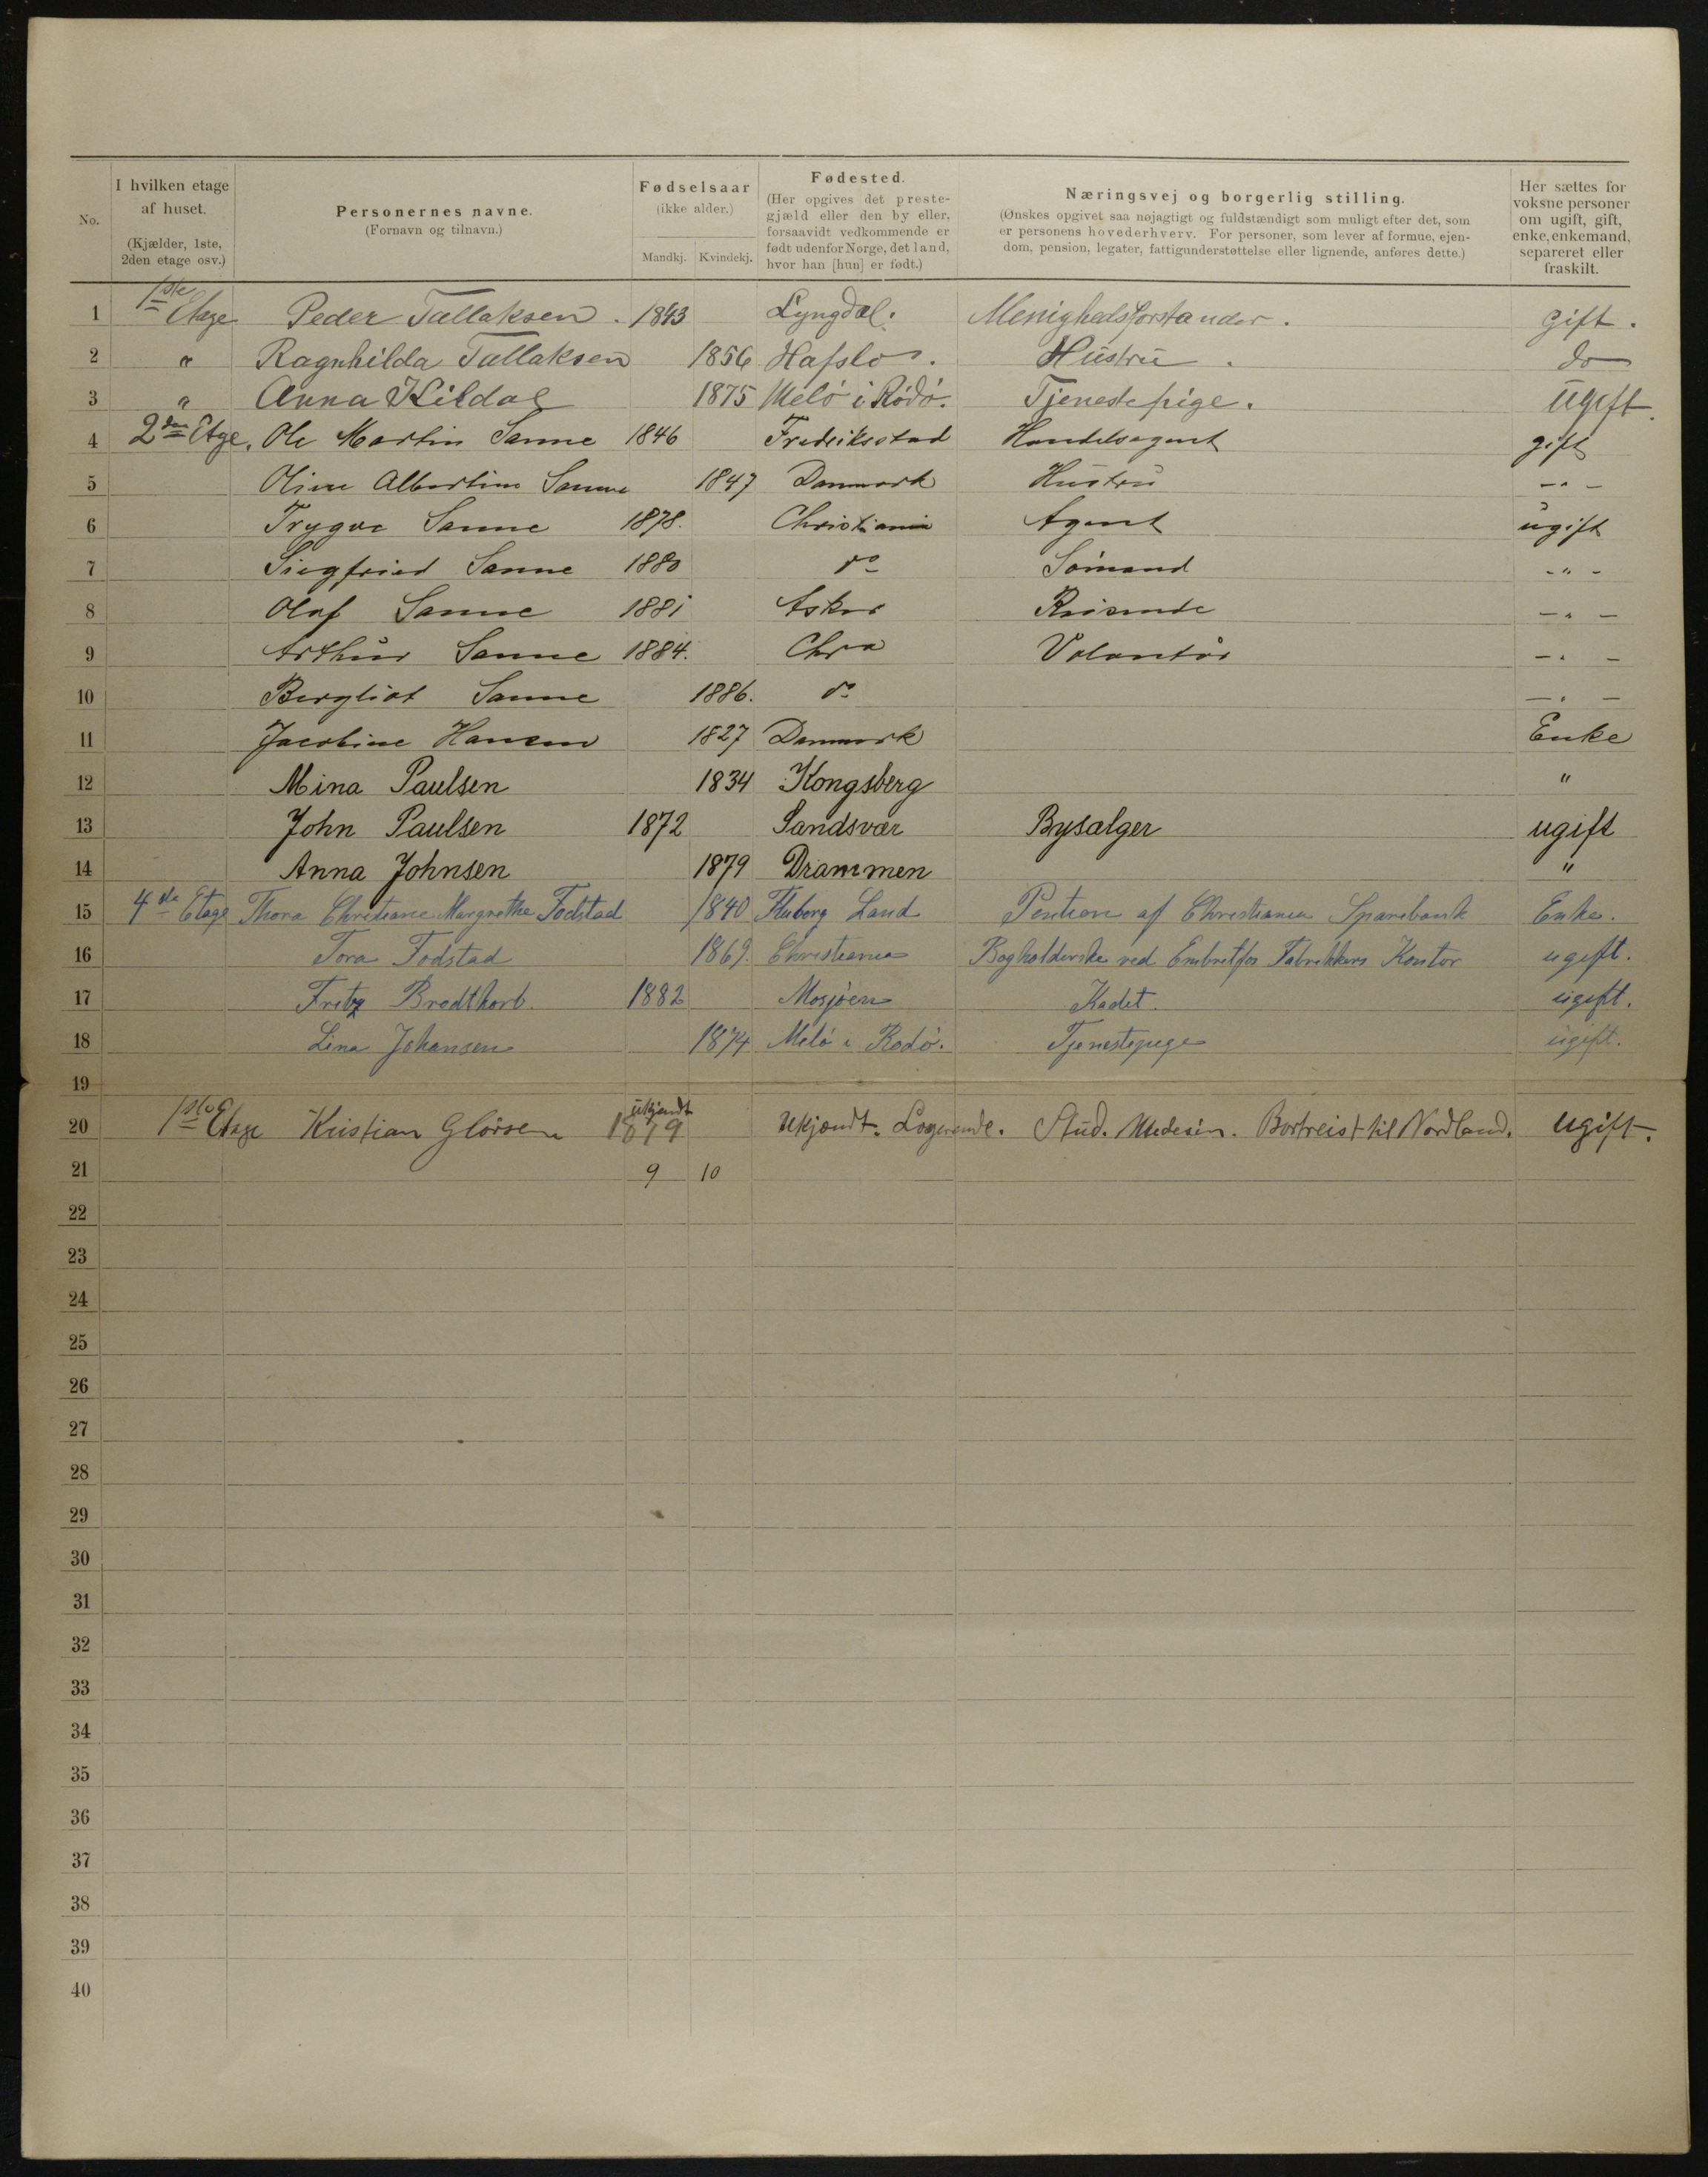 No.
I hvilken etage
af huset.
(Kjælder, 1ste,
2den etage osv.)
Personernes navne.
(Fornavn og tilnavn.)
Fødselsaar
(ikke alder.)
Mandkj. Kvindekj.
Fødested.
(Her opgives det preste-
gjæld eller den by eller,
forsaavidt vedkommende er
født udenfor Norge, det land,
hvor han [hun] er født.)
Næringsvej og borgerlig stilling.
(Ønskes opgivet saa nøjagtigt og fuldstændigt som muligt efter det, som
er personens hovederhverv. For personer, som lever af formue, ejen-
dom, pension, legater, fattigunderstøttelse eller lignende, anføres dette.)
Her sættes for
voksne personer
om ugift, gift,
enke, enkemand,
separeret eller
fraskilt.
1 1ste Etage Peder Tallaksen . 1843 Lyngdal. Menighedsforstander . gift .
2 " Ragnhilda Tallaksen 1856 Hafslo . Hustru . do
3 " Anna Kildal 1875 Melö i Rödö. Tjenestepige . Ugift .
4 2den Etge. Ole Martin Sanne 1846 Fredriksstad Handelsagent gift
5 Oline Albertine Sanne 1847 Danmark Hustru - " -
6 Trygve Sanne 1878. Christiania Agent ugift
7 Siegfried Sanne 1880 do Sömand - " -
8 Olaf Sanne 1881 Asker Reisende - " -
9 Arthur Sanne 1884. Chra Volontör - " -
10 Bergliot Sanne 1886. do - " -
11 Jacobine Hansen 1827 Danmark Enke
12 Mina Paulsen 1834 Kongsberg "
13 John Paulsen 1872 Sandsvær Bysælger ugift
14 Anna Johnsen 1879 Drammen "
15 4de Etage Thora Christiane Margrethe Fodstad 1840 Fluberg Land Pention af Christiania Sparebank Enke.
16 Tora Fodstad 1869. Christiania Bogholderske ved Embretfos Fabrikkers Kontor ugift.
17 Fritz Bredthorb. 1882 Mosjöen Kadet. ugift.
18 Lina Johansen 1874 Melö i Rodö. Tjenestepige ugift.
19
ukjendt
20 1ste Etage Kristian Glörsen 1879 Ukjendt. Logerende. Stud. Medesin. Bortreist til Nordland. ugift.
21 9 10
22
23
24
25
26
27
28
29
30
31
32
33
34
35
36
37
38
39
40